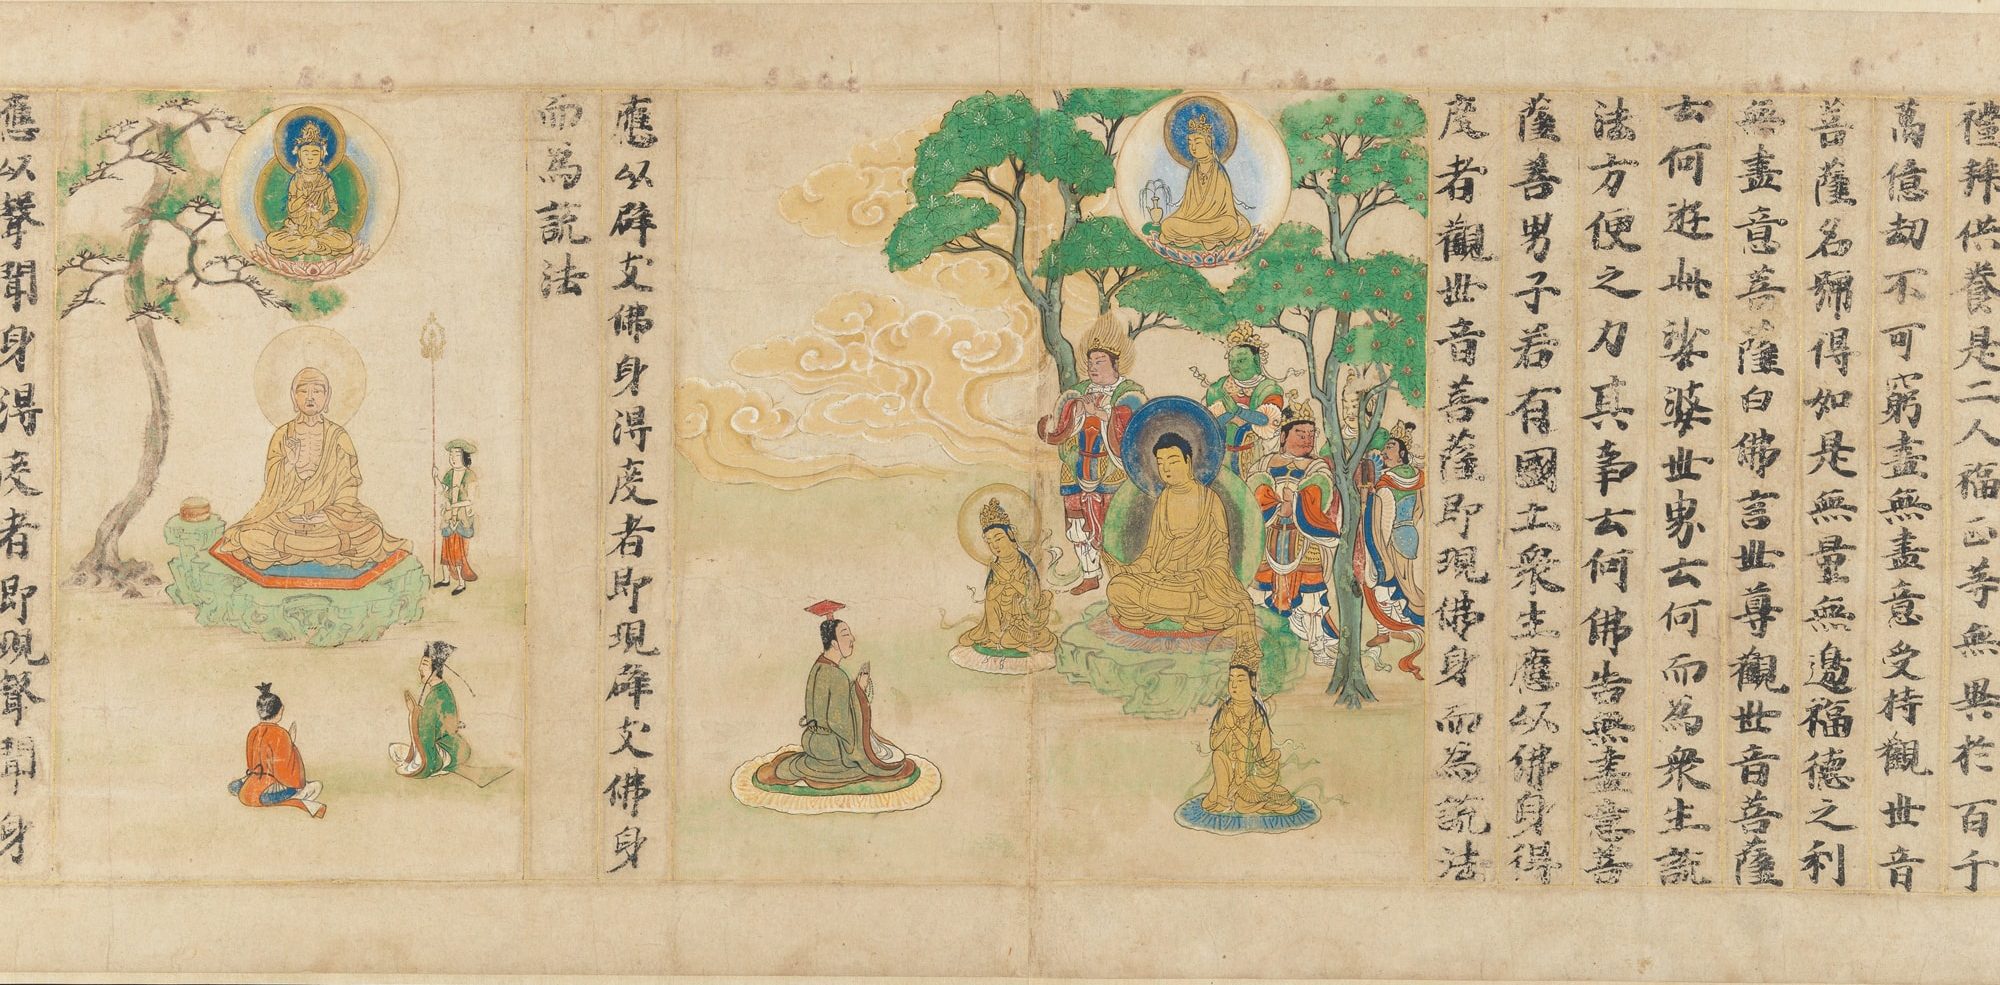 禮拜供養是二人福正等無異於百千
萬億劫不可窮盡無盡意受持觀世音
菩薩名號得如是無量無邊福德之利
無盡意菩薩白佛言世尊觀世音菩薩
云何遊此娑婆世界云何而為衆生說
法方便之力其事云何佛告無盡意菩
薩善男子若有國土衆生應以佛身得
度者觀世音菩薩即現佛身而為說法
應以辟支佛身得度者即現辟支佛身
而為說法
應以聲聞身得度者即現聲聞身